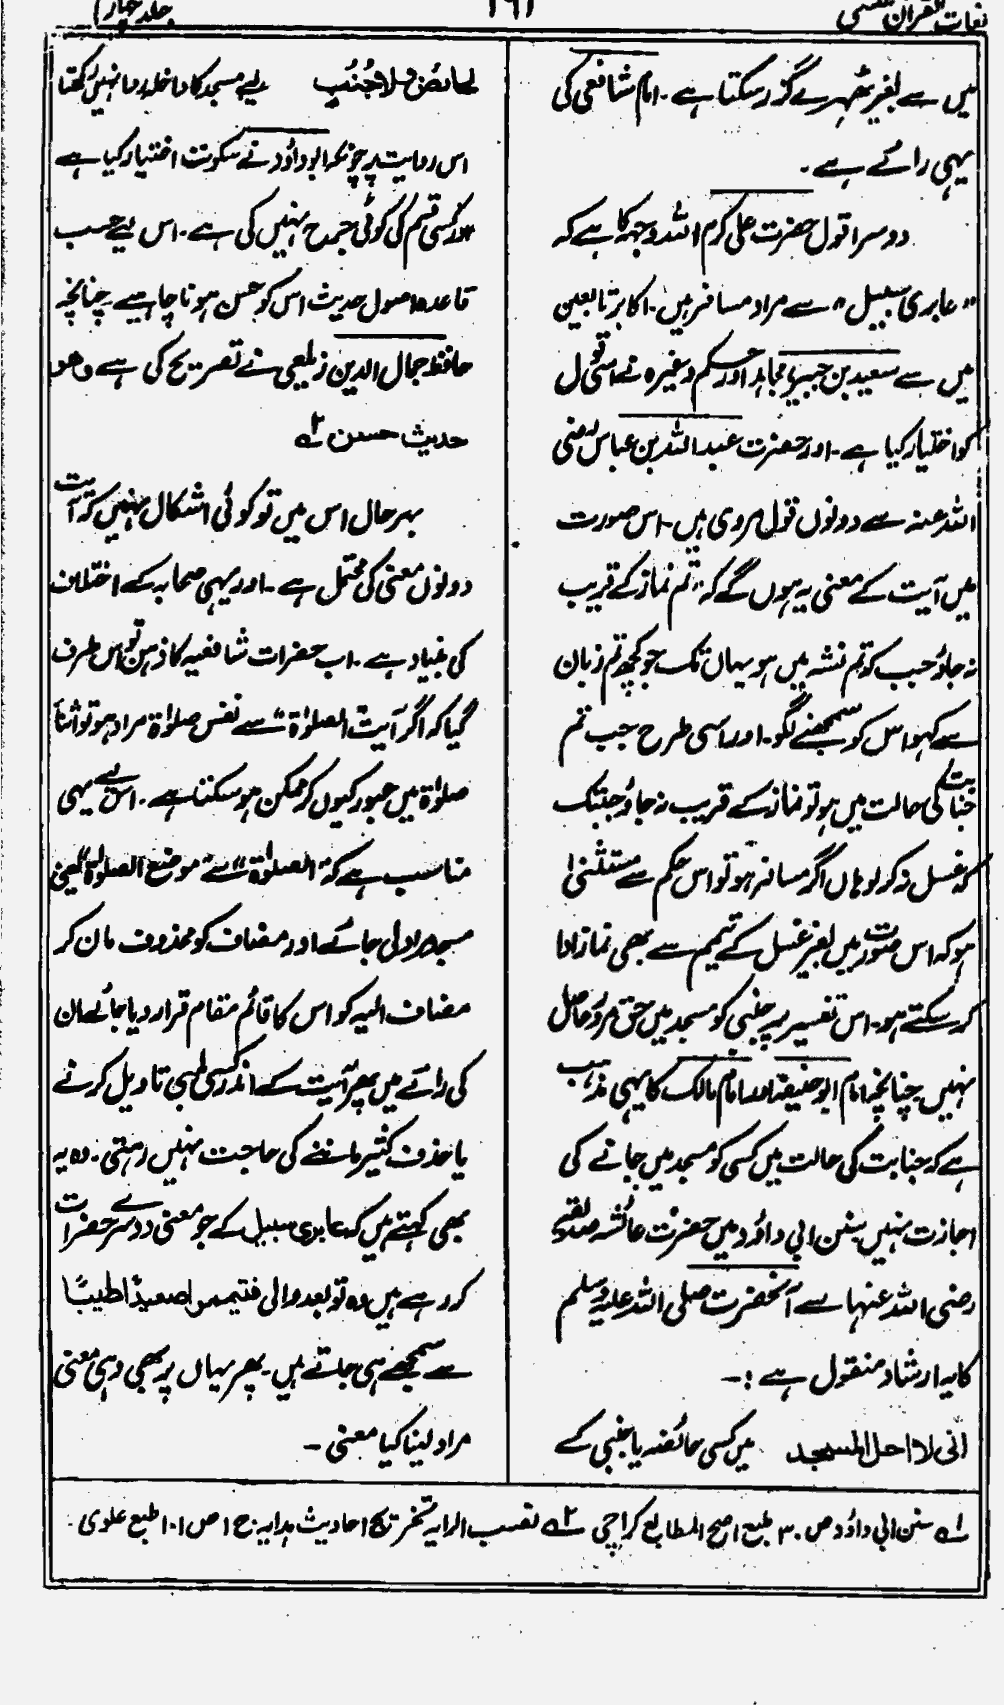 لغات القرآن
۱۹۱
جلد چہارم
میں سے بغیر ٹھہرے گزر سکتا ہے۔ امام شافعی کی
یہی رائے ہے۔
دوسرا قول حضرت علی کرم اللہ وجہہ کا ہے کہ
"عابری سبیل" سے مراد مسافر ہیں۔ اکابر تابعین
میں سے سعید بن جبیر، مجاہد اور حکم وغیرہ نے اسی قول
کو اختیار کیا ہے۔ اور حضرت عبداللہ بن عباس رضی
اللہ عنہ سے دونوں قول مروی ہیں۔ اس صورت
میں آیت کے معنی یہ ہوں گے کہ "تم نماز کے قریب
نہ جاؤ جب کہ تم نشہ میں ہو یہاں تک جو کچھ تم زبان
سے کہو اس کو سمجھنے لگو۔ اور اسی طرح جب تم
جنابت کی حالت میں ہو تو نماز کے قریب نہ جاؤ جبتک
کہ غسل نہ کر لو ہاں اگر مسافر ہو تو اس حکم سے مستثنیٰ
ہو کہ اس صورت میں بغیر غسل کے تیمم سے بھی نماز ادا
کر سکتے ہو۔ اس تفسیر پر جنبی کو مسجد میں حق مرور حاصل
نہیں چنانچہ امام ابو حنیفہ اور امام مالک کا یہی مذہب
ہے کہ جنابت کی حالت میں کسی کو مسجد میں جانے کی
اجازت نہیں سنن ابی داؤد میں حضرت عائشہ صدیقہ
رضی اللہ عنہا سے آنحضرت صلی اللہ علیہ وسلم
کا یہ ارشاد منقول ہے :۔
انی لا احل المسجد میں کسی حائضہ یا جنبی کے
لحائض ولا جُنُب لیے مسجد کا داخلہ روا نہیں رکھتا
اس روایت پر چونکہ ابو داؤد نے سکوت اختیار کیا ہے
اور کسی قسم کی کوئی جرح نہیں کی ہے۔ اس لیے حسب
قاعدہ اصول حدیث اس کو حسن ہونا چاہیے چنانچہ
حافظ جمال الدین زیلعی نے تصریح کی ہے وھو
حدیث حسن ۲؎
بہرحال اس میں تو کوئی اشکال نہیں کہ آیت
دونوں معنی کی محتمل ہے۔ اور یہی صحابہ کے اختلاف
کی بنیاد ہے۔ اب حضرات شافعیہ کا ذہن تو اس طرف
گیا کہ اگر آیت "الصلوٰۃ" سے نفس صلوٰۃ مراد ہو تو اثنائے
صلوٰۃ میں عبور کیوں کر ممکن ہو سکتا ہے۔ اس لیے یہی
مناسب ہے کہ "الصلوٰۃ" سے "موضع الصلوٰۃ" یعنی
مسجد مراد لی جائے اور مضاف کو محذوف مان کر
مضاف الیہ کو اس کا قائم مقام قرار دیا جائے ان
کی رائے میں پھر آیت کے اندر کسی لمبی تاویل کرنے
یا حذف کثیر ماننے کی حاجت نہیں رہتی۔ وہ یہ
بھی کہتے ہیں کہ عابری سبیل کے جو معنی دوسرے حضرات
کر رہے ہیں وہ تو بعد والی فتیمموا صعیدًا طیبًا
سے سمجھے ہی جاتے ہیں۔ پھر یہاں پر بھی وہی معنی
مراد لینا کیا معنی۔
۱؎ سنن ابی داؤد ص ۳۰ طبع اصح المطابع کراچی ۲؎ نصب الرایہ تخریج احادیث ہدایہ ج ۱ ص ۱۰۱ طبع علوی۔